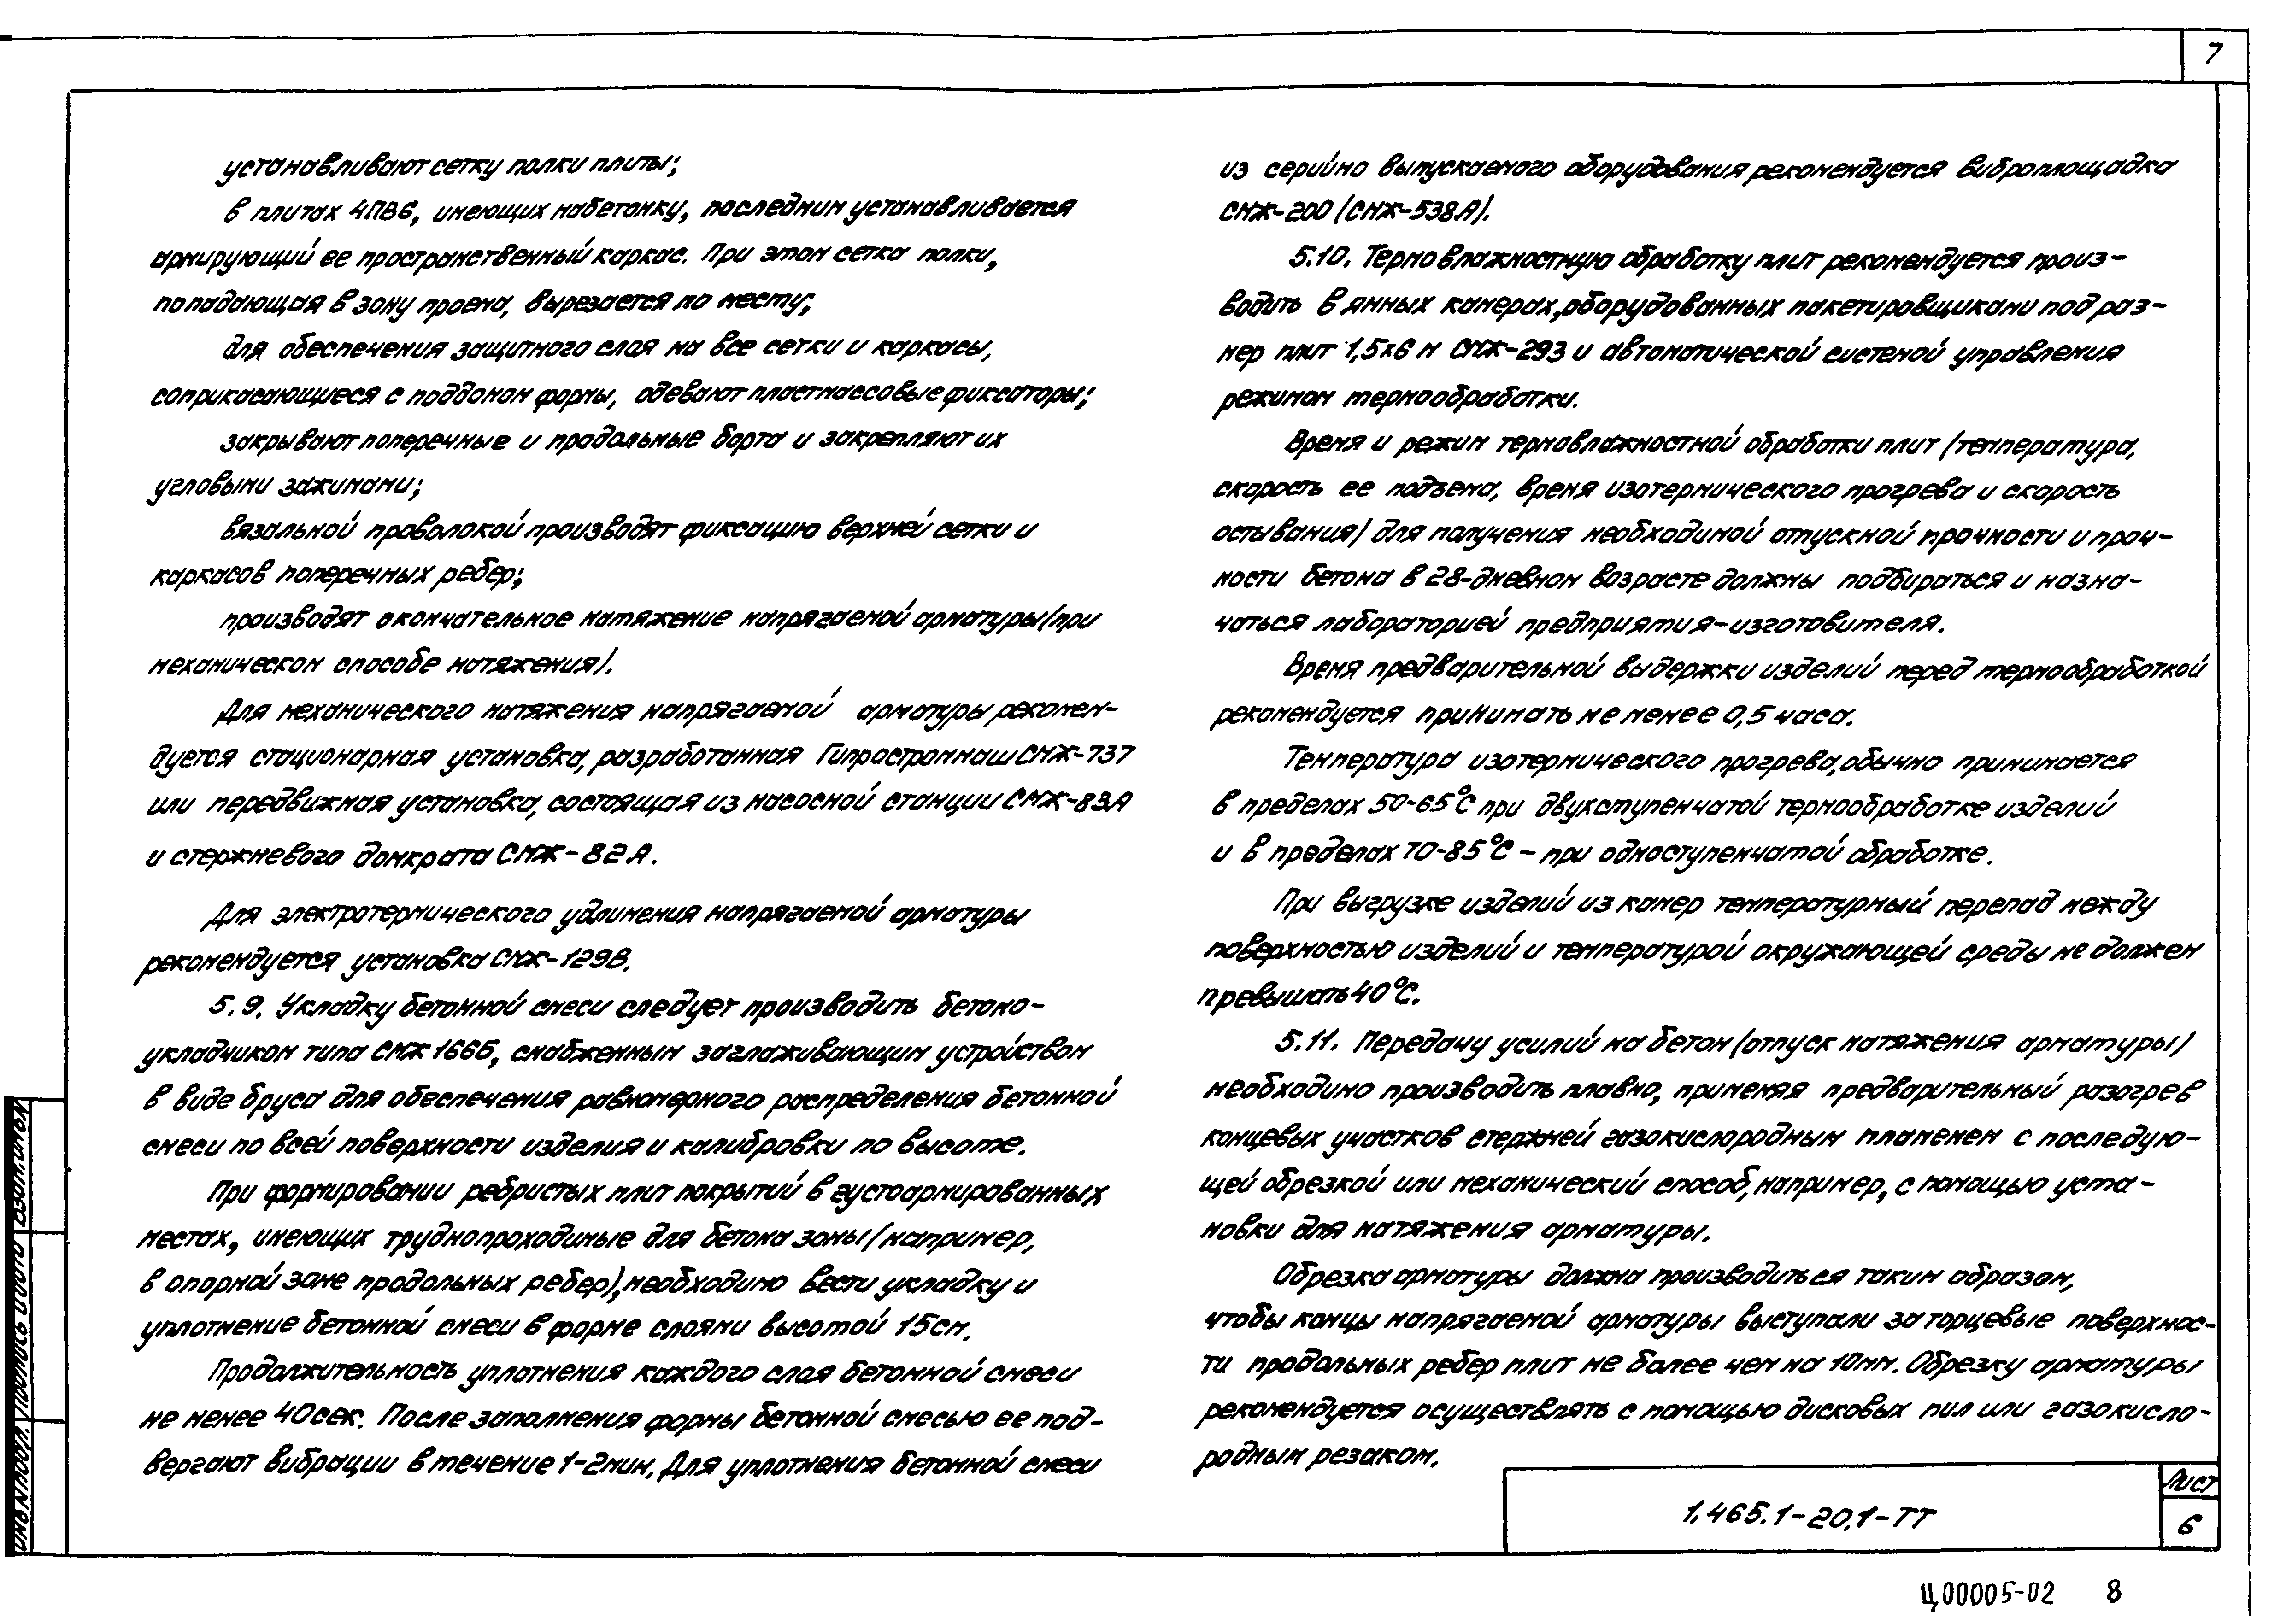 7
устанавливают сетку полки плиты;
в плитах 4ПВ6, имеющих набетонку, последним устанавливается
армирующий ее пространственный каркас. При этом сетка полки,
попадающая в зону проема, вырезается по месту;
для обеспечения защитного слоя на все сетки и каркасы,
соприкасающиеся с поддоном формы, одевают пластмассовые фиксаторы;
закрывают поперечные и продольные борта и закрепляют их
угловыми зажимами;
вязальной проволокой производят фиксацию верхней сетки и
каркасов поперечных ребер;
производят окончательное натяжение напрягаемой арматуры (при
механическом способе натяжения).
Для механического натяжения напрягаемой арматуры рекомен-
дуется стационарная установка, разработанная Гипростроммаш СМЖ-737
или передвижная установка, состоящая из насосной станции СМЖ-83А
и стержневого домкрата СМЖ-82А.
Для электротермического удлинения напрягаемой арматуры
рекомендуется установка СМЖ-129В.
5.9. Укладку бетонной смеси следует производить бетоно-
укладчиком типа СМЖ 166Б, снабженным заглаживающим устройством
в виде бруса для обеспечения равномерного распределения бетонной
смеси по всей поверхности изделия и калибровки по высоте.
При формировании ребристых плит покрытий в густоармированных
местах, имеющих труднопроходимые для бетона зоны (например,
в опорной зоне продольных ребер), необходимо вести укладку и
уплотнение бетонной смеси в форме слоями высотой 15см.
Продолжительность уплотнения каждого слоя бетонной смеси
не менее 40сек. После заполнения формы бетонной смесью ее под-
вергают вибрации в течение 1-2мин. Для уплотнения бетонной смеси
из серийно выпускаемого оборудования рекомендуется виброплощадка
СМЖ-200 (СМЖ-538А).
5.10. Термовлажностную обработку плит рекомендуется произ-
водить в ямных камерах, оборудованных пакетировщиками под раз-
мер плит 1,5х6 м СМЖ-293 и автоматической системой управления
режимом термообработки.
Время и режим термовлажностной обработки плит (температура,
скорость ее подъема, время изотермического прогрева и скорость
остывания) для получения необходимой отпускной прочности и проч-
ности бетона в 28-дневном возрасте должны подбираться и назна-
чаться лабораторией предприятия-изготовителя.
Время предварительной выдержки изделий перед термообработкой
рекомендуется принимать не менее 0,5 часа.
Температура изотермического прогрева, обычно принимается
в пределах 50-65°С при двухступенчатой термообработке изделий
и в пределах 70-85°С – при одноступенчатой обработке.
При выгрузке изделий из камер температурный перепад между
поверхностью изделий и температурой окружающей среды не должен
превышать 40°С.
5.11. Передачу усилий на бетон (отпуск натяжения арматуры)
необходимо производить плавно, применяя предварительный разогрев
концевых участков стержней газокислородным пламенем с последую-
щей обрезкой или механический способ, например, с помощью уста-
новки для натяжения арматуры.
Обрезка арматуры должна производиться таким образом,
чтобы концы напрягаемой арматуры выступали за торцевые поверхнос-
ти продольных ребер плит не более чем на 10мм. Обрезку арматуры
рекомендуется осуществлять с помощью дисковых пил или газокисло-
родным резаком.
Инв.N подл. Подпись и дата Взам.инв.N
1.465.1-20.1-ТТ
Лист
6
Ц00005-02 8